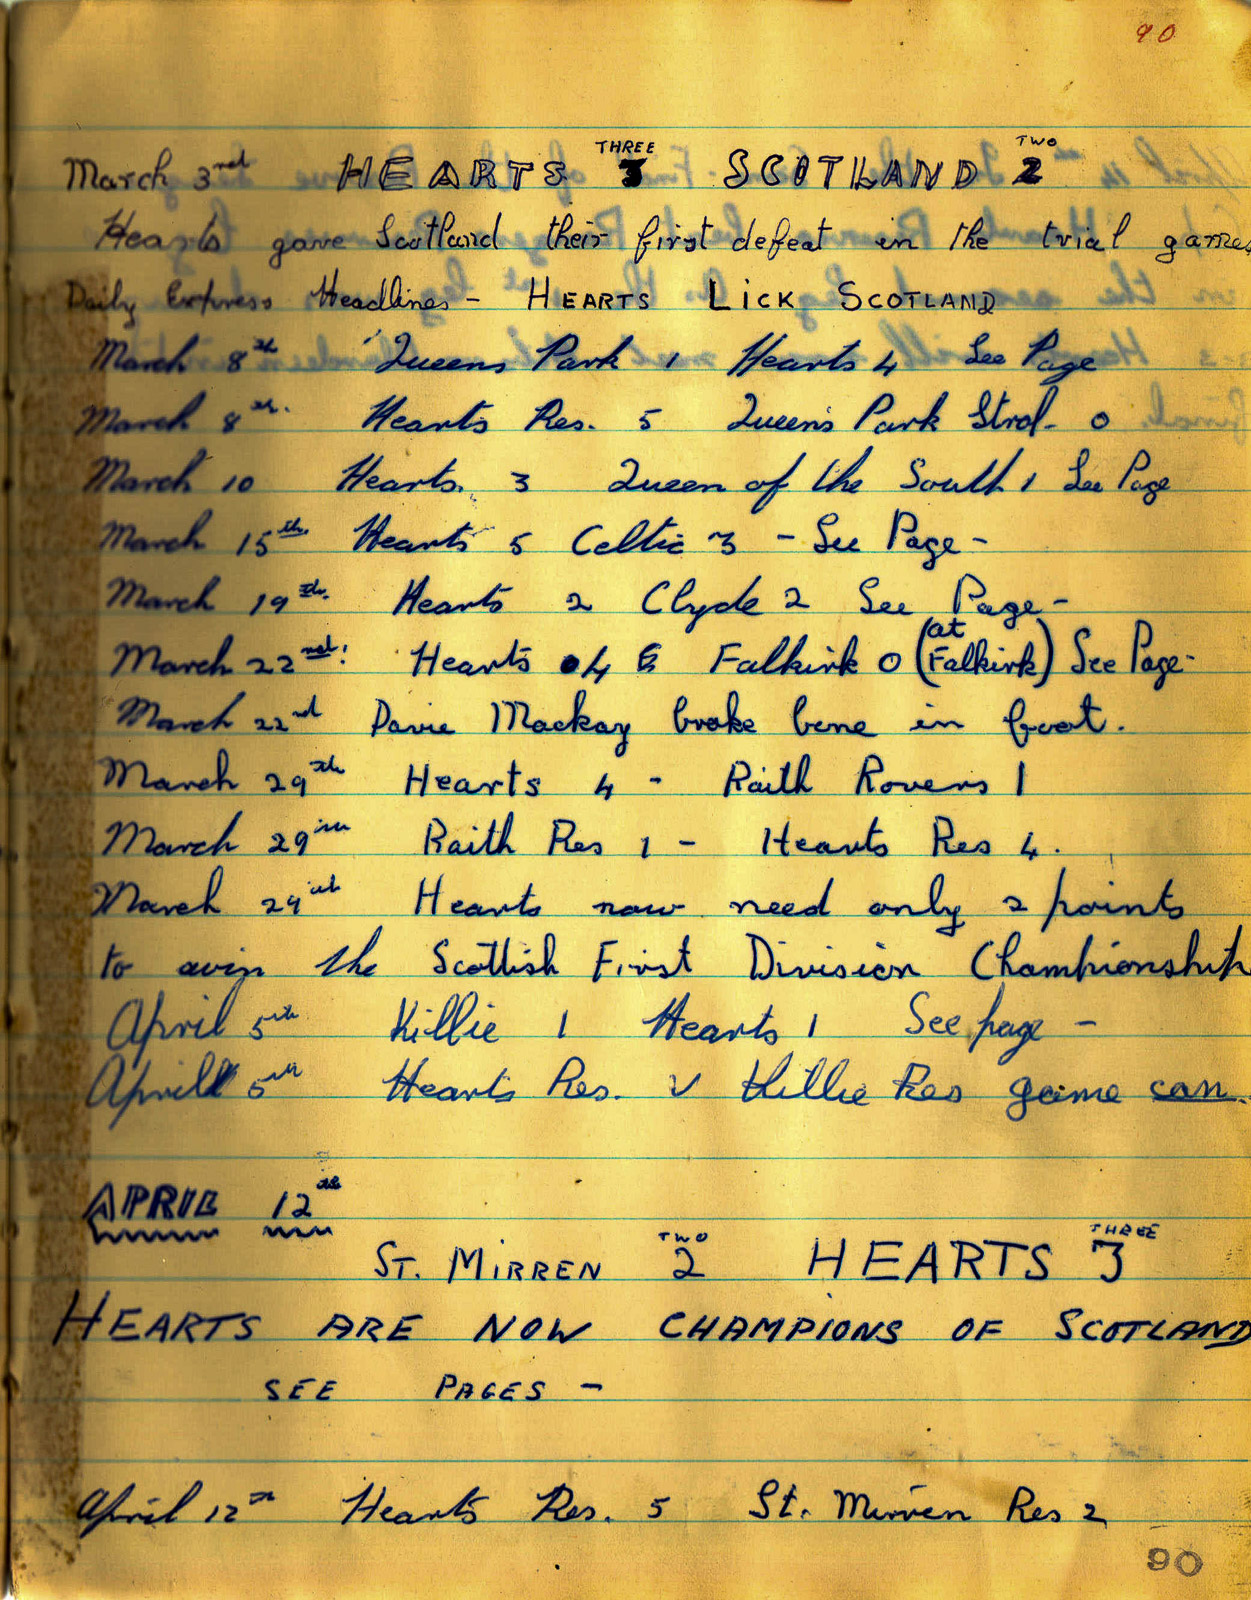 90
March 3rd HEARTS THREE 3 SCOTLAND TWO 2
Hearts gave Scotland their first defeat in the trial games
Daily Express Headlines - HEARTS LICK SCOTLAND
March 8th Queens Park 1 Hearts 4 See Page
March 8th. Hearts Res. 5 Queen's Park Strol- 0
March 10 Hearts. 3 Queen of the South 1 See Page
March 15th. Hearts 5 Celtic 3 - See Page -
March 19th. Hearts 2 Clyde 2 See Page -
March 22nd! Hearts 4 Falkirk 0 (at Falkirk) See Page -
March 22nd Davie Mackay broke bone in foot.
March 29th Hearts 4 - Raith Rovers 1
March 29th Raith Res 1 - Hearts Res 4.
March 29th Hearts now need only 2 points
to win the Scottish First Division Championship
April 5th Killie 1 Hearts 1 See page -
April 5th Hearts Res. v Killie Res game can.
APRIL 12th
ST. MIRREN TWO 2 HEARTS THREE 3
HEARTS ARE NOW CHAMPIONS OF SCOTLAND
SEE PAGES -
April 12th Hearts Res. 5 St. Mirren Res 2
90